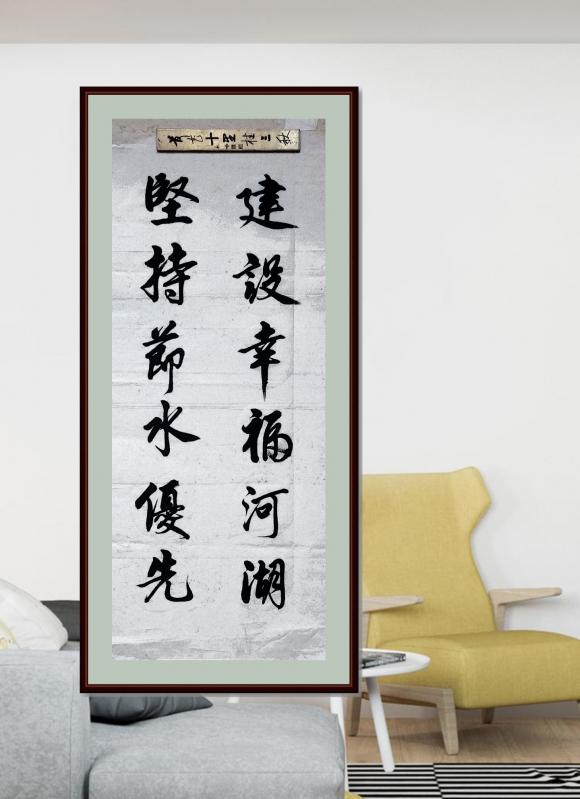 堅持節水優先
建設幸福河湖